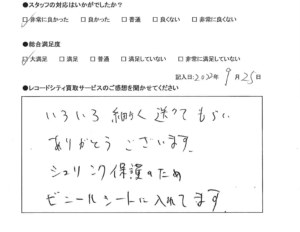 ●スタッフの対応はいかがでしたか？
☑非常に良かった □良かった □普通 □良くない □非常に良くない
●総合満足度
☑大満足 □満足 □普通 □満足していない □非常に満足していない
記入日:2022年9月25日
●レコードシティ買取サービスのご感想を聞かせてください
いろいろ細かく送ってもらい
ありがとうございます。
シュリンク保護のため
ビニールシートに入れてます